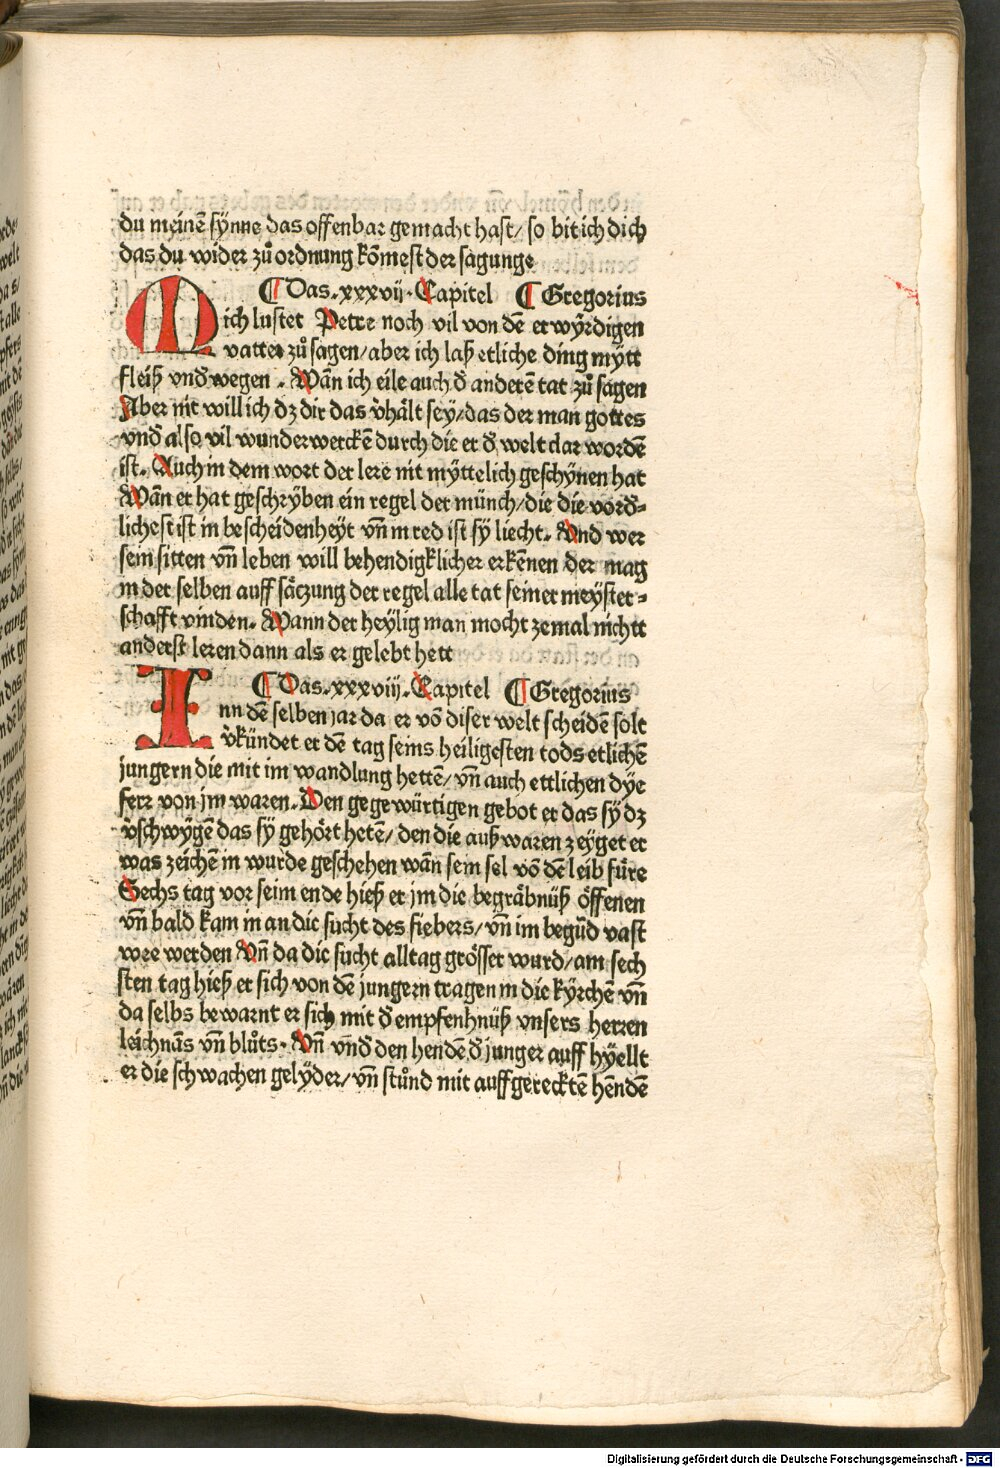 du meinē sÿnne das offenbar gemacht hast/ so bit ich dich
das du wider zů ordnung kōmest der sagunge
¶ Das .xxxvij. Capitel ¶ Gregorius
Mich lustet Petre noch vil von dē erwÿrdigen
vatter zů sagen/ aber ich laß etliche ding mÿtt
fleiß vnd wegen . Wān ich eile auch d̄ anderē tat zů sagen
Aber nit will ich dz dir das v̄hält seÿ/ das der man gottes
vnd also vil wunderwerckē durch die er d̄ welt clar wordē
ist. Auch in dem wort der lere nit mÿttelich geschÿnen hat
Wān er hat geschrÿben ein regel der münch/ die die vord̄-
lichest ist in bescheidenheÿt vn̄ in red ist sÿ liecht. Vnd wer
sein sitten vn̄ leben will behendigklicher erkēnen der mag
in der selben auff säczung der regel alle tat seiner meÿster-
schafft vinden. Wann der heÿlig man mocht ze mal nichtt
anderst leren dann als er gelebt hett
¶ Das .xxxviij. Capitel ¶ Gregorius
Inn dē selben jar da er vō diser welt scheidē solt
v̄kündet er dē tag seins heiligesten tods etlichē
jungern die mit im wandlung hettē/ vn̄ auch ettlichen dÿe
ferr von jm waren. Den gegewürtigen gebot er das sÿ dz
v̄schwÿgē das sÿ gehört hetē/ den die auß waren zeÿget er
was zeichē in wurde geschehen wān sein sel vō dē leib füre
Sechs tag vor seim ende hieß er jm die begräbnüß öffenen
vn̄ bald kam in an die sucht des fiebers/ vn̄ im begūd vast
wee werden Vn̄ da die sucht alltag grösser wurd/ am sech
sten tag hieß er sich von dē jungern tragen in die kÿrchē vn̄
da selbs bewarnt er sich mit d̄ empfenhnüß vnsers herren
leichnās vn̄ blůts. Vn̄ vnd̄ den hendē d̄ junger auff hÿellt
er die schwachen gelÿder/ vn̄ stůnd mit auffgerecktē hēndē
Digitalisierung gefördert durch die Deutsche Forschungsgemeinschaft - DFG